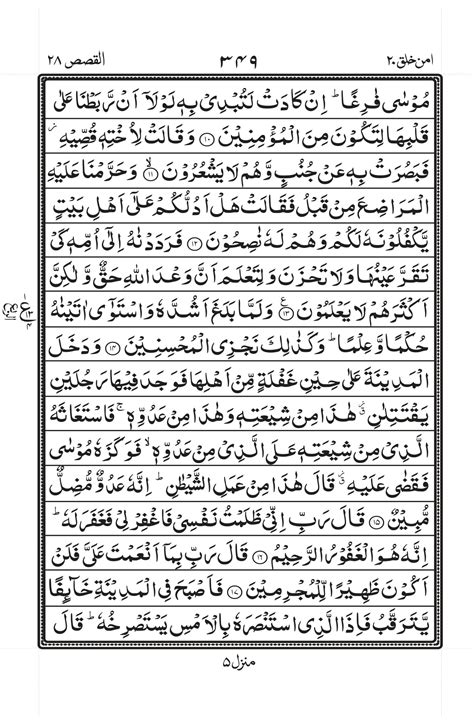 امن خلق ۲۰ ۳۴۹ القصص ۲۸
مُوْسٰی فٰرِغًا ؕ اِنْ كَادَتْ لَتُبْدِیْ بِهٖ لَوْلَاۤ اَنْ رَّبَطْنَا عَلٰی
قَلْبِهَا لِتَكُوْنَ مِنَ الْمُؤْمِنِیْنَ ﴿۱۰﴾ وَ قَالَتْ لِاُخْتِهٖ قُصِّیْهِ ؗ
فَبَصُرَتْ بِهٖ عَنْ جُنُبٍ وَّ هُمْ لَا یَشْعُرُوْنَ ۙ﴿۱۱﴾ وَ حَرَّمْنَا عَلَیْهِ
الْمَرَاضِعَ مِنْ قَبْلُ فَقَالَتْ هَلْ اَدُلُّكُمْ عَلٰۤی اَهْلِ بَیْتٍ
یَّكْفُلُوْنَهٗ لَكُمْ وَ هُمْ لَهٗ نٰصِحُوْنَ ﴿۱۲﴾ فَرَدَدْنٰهُ اِلٰۤی اُمِّهٖ كَیْ
تَقَرَّ عَیْنُهَا وَ لَا تَحْزَنَ وَ لِتَعْلَمَ اَنَّ وَعْدَ اللّٰهِ حَقٌّ وَّ لٰكِنَّ
اَكْثَرَهُمْ لَا یَعْلَمُوْنَ ﴿۱۳﴾ وَ لَمَّا بَلَغَ اَشُدَّهٗ وَ اسْتَوٰۤی اٰتَیْنٰهُ
حُكْمًا وَّ عِلْمًا ؕ وَ كَذٰلِكَ نَجْزِی الْمُحْسِنِیْنَ ﴿۱۴﴾ وَ دَخَلَ
الْمَدِیْنَةَ عَلٰی حِیْنِ غَفْلَةٍ مِّنْ اَهْلِهَا فَوَجَدَ فِیْهَا رَجُلَیْنِ
یَقْتَتِلٰنِ ؗ هٰذَا مِنْ شِیْعَتِهٖ وَ هٰذَا مِنْ عَدُوِّهٖ ۚ فَاسْتَغَاثَهُ
الَّذِیْ مِنْ شِیْعَتِهٖ عَلَی الَّذِیْ مِنْ عَدُوِّهٖ ۙ فَوَكَزَهٗ مُوْسٰی
فَقَضٰی عَلَیْهِ ؗ قَالَ هٰذَا مِنْ عَمَلِ الشَّیْطٰنِ ؕ اِنَّهٗ عَدُوٌّ مُّضِلٌّ
مُّبِیْنٌ ﴿۱۵﴾ قَالَ رَبِّ اِنِّیْ ظَلَمْتُ نَفْسِیْ فَاغْفِرْ لِیْ فَغَفَرَ لَهٗ ؕ
اِنَّهٗ هُوَ الْغَفُوْرُ الرَّحِیْمُ ﴿۱۶﴾ قَالَ رَبِّ بِمَاۤ اَنْعَمْتَ عَلَیَّ فَلَنْ
اَكُوْنَ ظَهِیْرًا لِّلْمُجْرِمِیْنَ ﴿۱۷﴾ فَاَصْبَحَ فِی الْمَدِیْنَةِ خَآىِٕفًا
یَّتَرَقَّبُ فَاِذَا الَّذِی اسْتَنْصَرَهٗ بِالْاَمْسِ یَسْتَصْرِخُهٗ ؕ قَالَ
منزل ۵